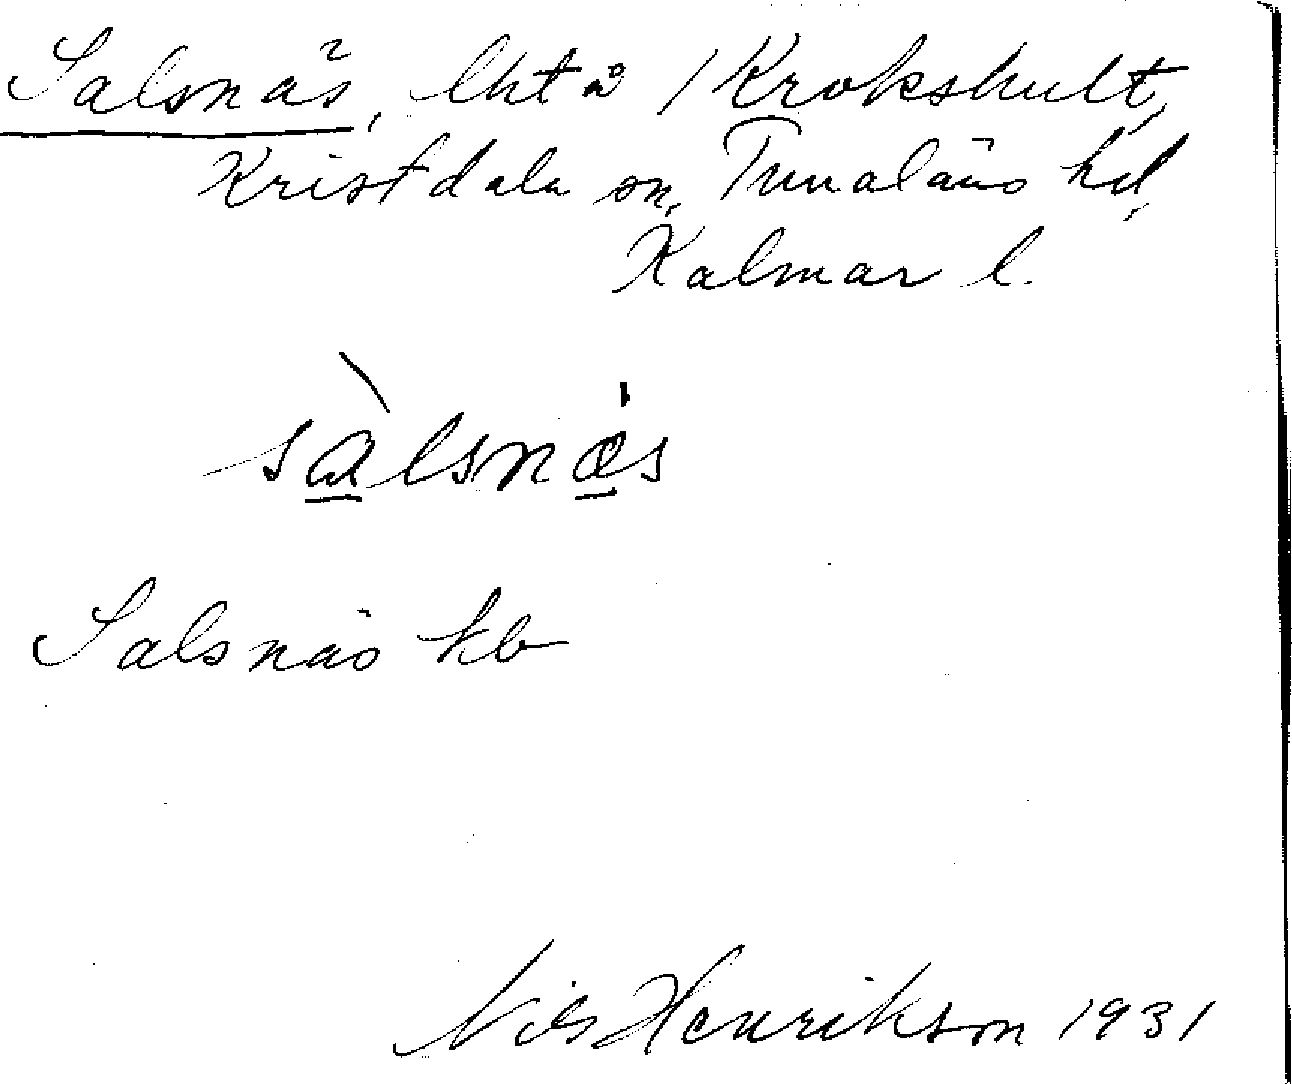 Salsnäs, lht å 1 Krokshult,
Kristdala sn, Tunaläns hd,
Kalmar l.
sàlsnæs
Salsnäs kb
Nils Henrikson 1931